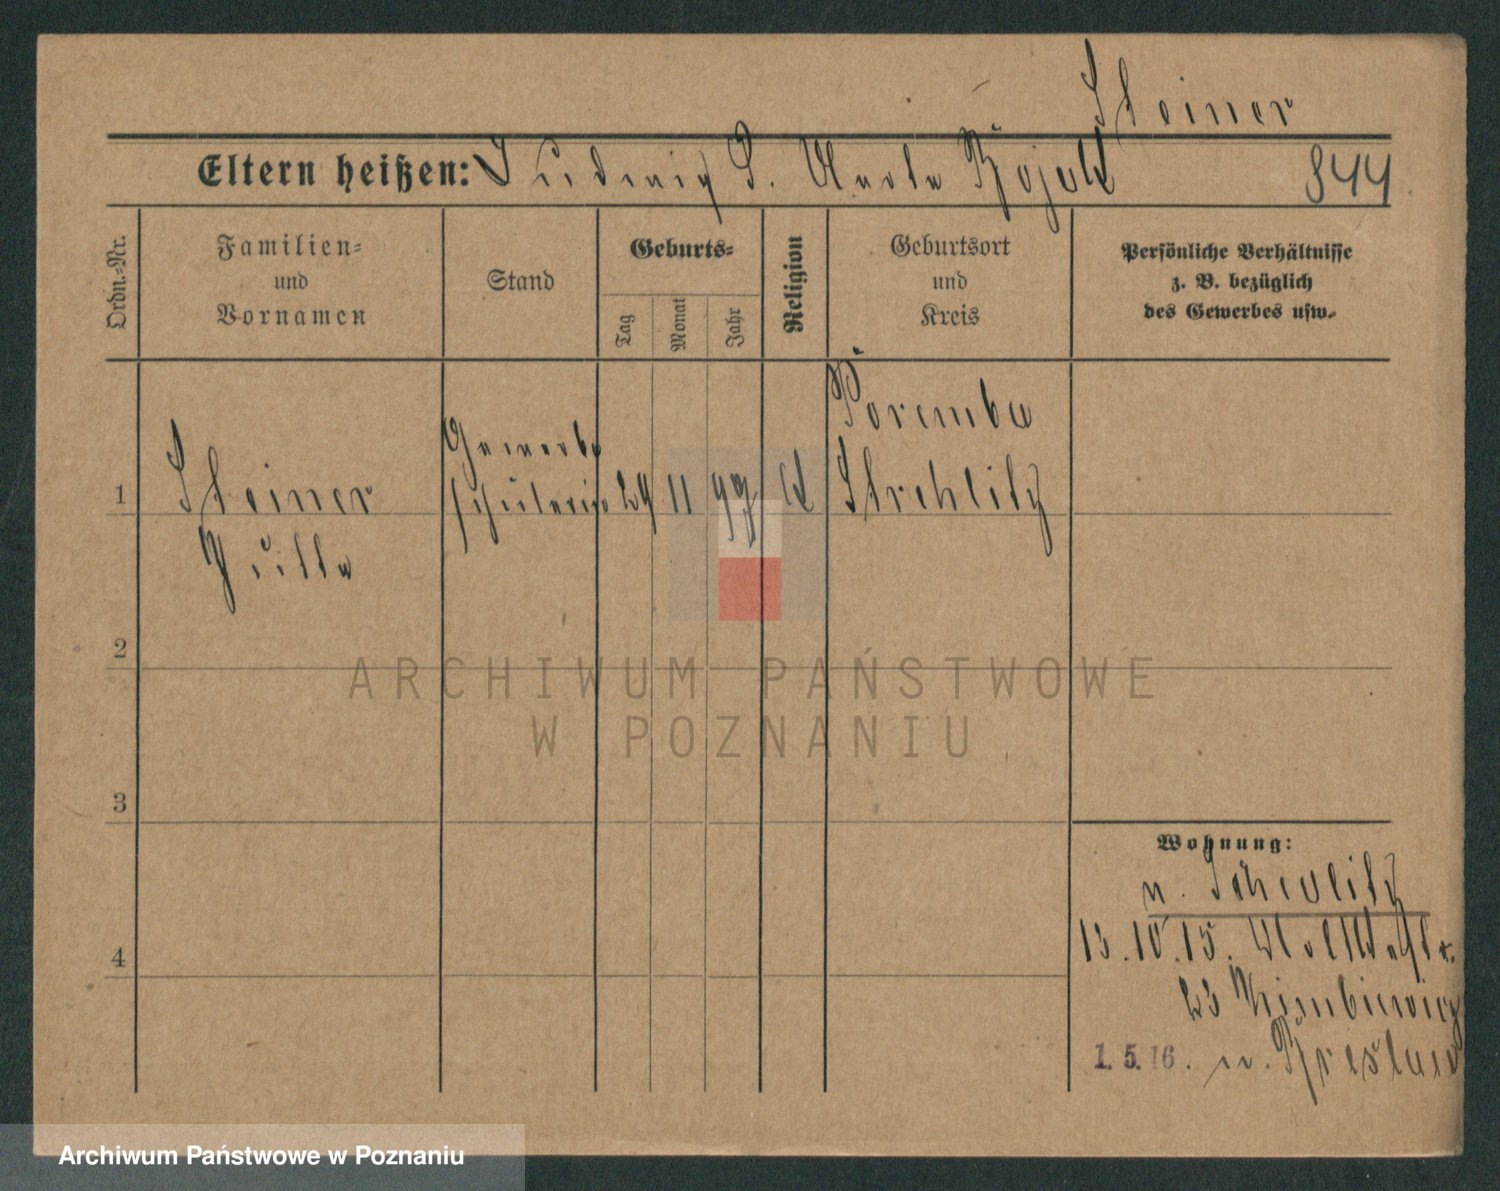 Steiner
Eltern heißen: Ludwig
844
Ordn.-Nr.
Familien-
und
Vornamen
Stand
Geburts-
Tag
Monat
Jahr
Religion
Geburtsort
und
Kreis
Persönliche Verhältnisse
z. B. bezüglich
des Gewerbes usw.
1
Steiner
Gewerbe
schülerin
29 11 97
Poremba
Strehlitz
2
3
4
Wohnung:
n.
13.10.15.
23
1.5.16. n. Breslau
ARCHIWUM PAŃSTWOWE
W POZNANIU
Archiwum Państwowe w Poznaniu